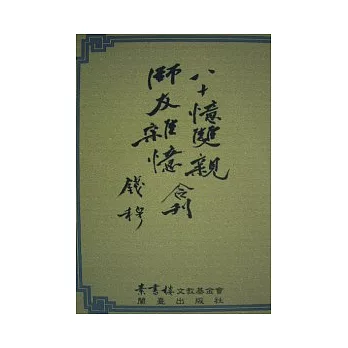 八十憶雙親
師友雜憶 合刊
錢穆
素書樓文教基金會
蘭臺出版社